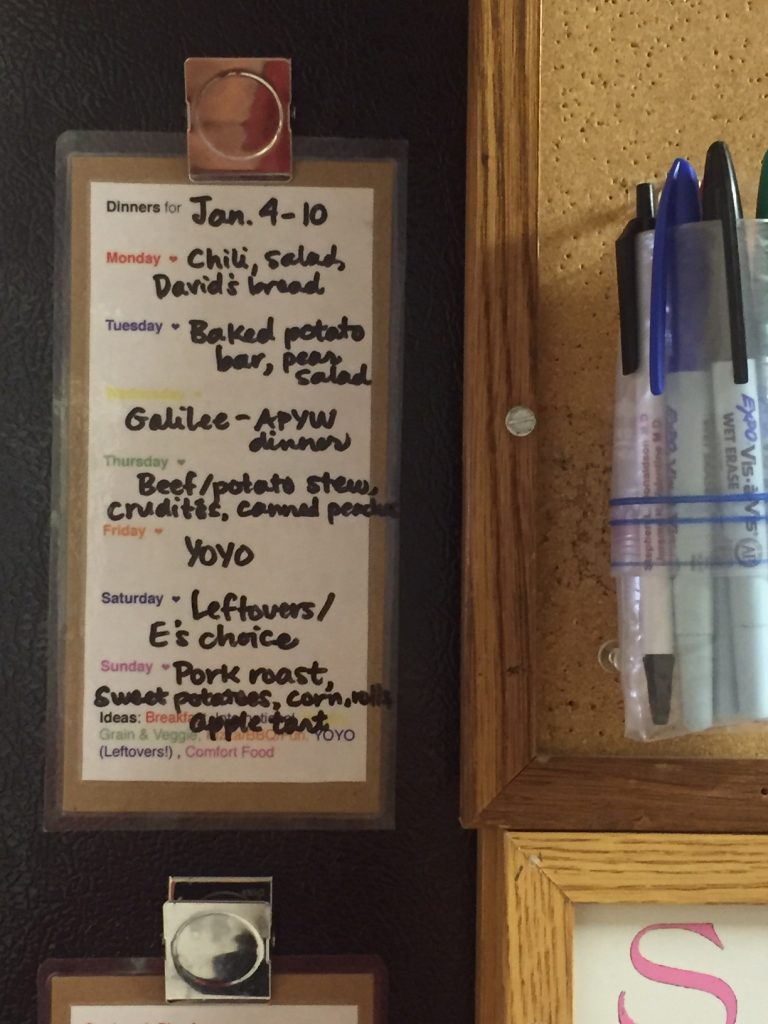 Dinners for Jan. 4-10
Monday ♥ Chili, salad,
David's bread
Tuesday ♥ Baked potato
bar, pear
salad
Wednesday ♥
Galilee - APYW
dinner
Thursday ♥
Beef/potato stew,
crudités, canned peaches
Friday ♥
YOYO
Saturday ♥ Leftovers/
E's choice
Sunday ♥ Pork roast,
sweet potatoes, corn, rolls
apple tart
Ideas: Breakfast,
Grain & Veggie, YOYO
(Leftovers!), Comfort Food
EXPO Vis-à-Vis
WET ERASE
S